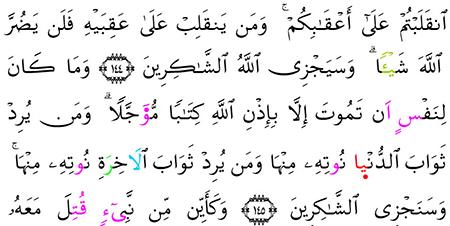 اَنقَلَبۡتُمۡ عَلَىٰٓ أَعۡقَٰبِكُمۡۚ وَمَن يَنقَلِبۡ عَلَىٰ عَقِبَيۡهِ فَلَن يَضُرَّ
اَللَّهَ شَيۡـٔٗاۗ وَسَيَجۡزِي اِللَّهُ اُلشَّٰكِرِينَ ١٤٤ وَمَا كَانَ
لِنَفۡسٍ اَن تَمُوتَ إِلَّا بِإِذۡنِ اِللَّهِ كِتَٰبٗا مُّوَ۬جَّلٗاۗ وَمَن يُرِدۡ
ثَوَابَ اَلدُّنۡيَا نُوتِهِۦ مِنۡهَا وَمَن يُرِدۡ ثَوَابَ اَلَاخِرَةِ نُوتِهِۦ مِنۡهَاۚ
وَسَنَجۡزِي اِلشَّٰكِرِينَ ١٤٥ وَكَأَيِّن مِّن نَّبِيٓءٖ قُتِلَ مَعَهُۥ